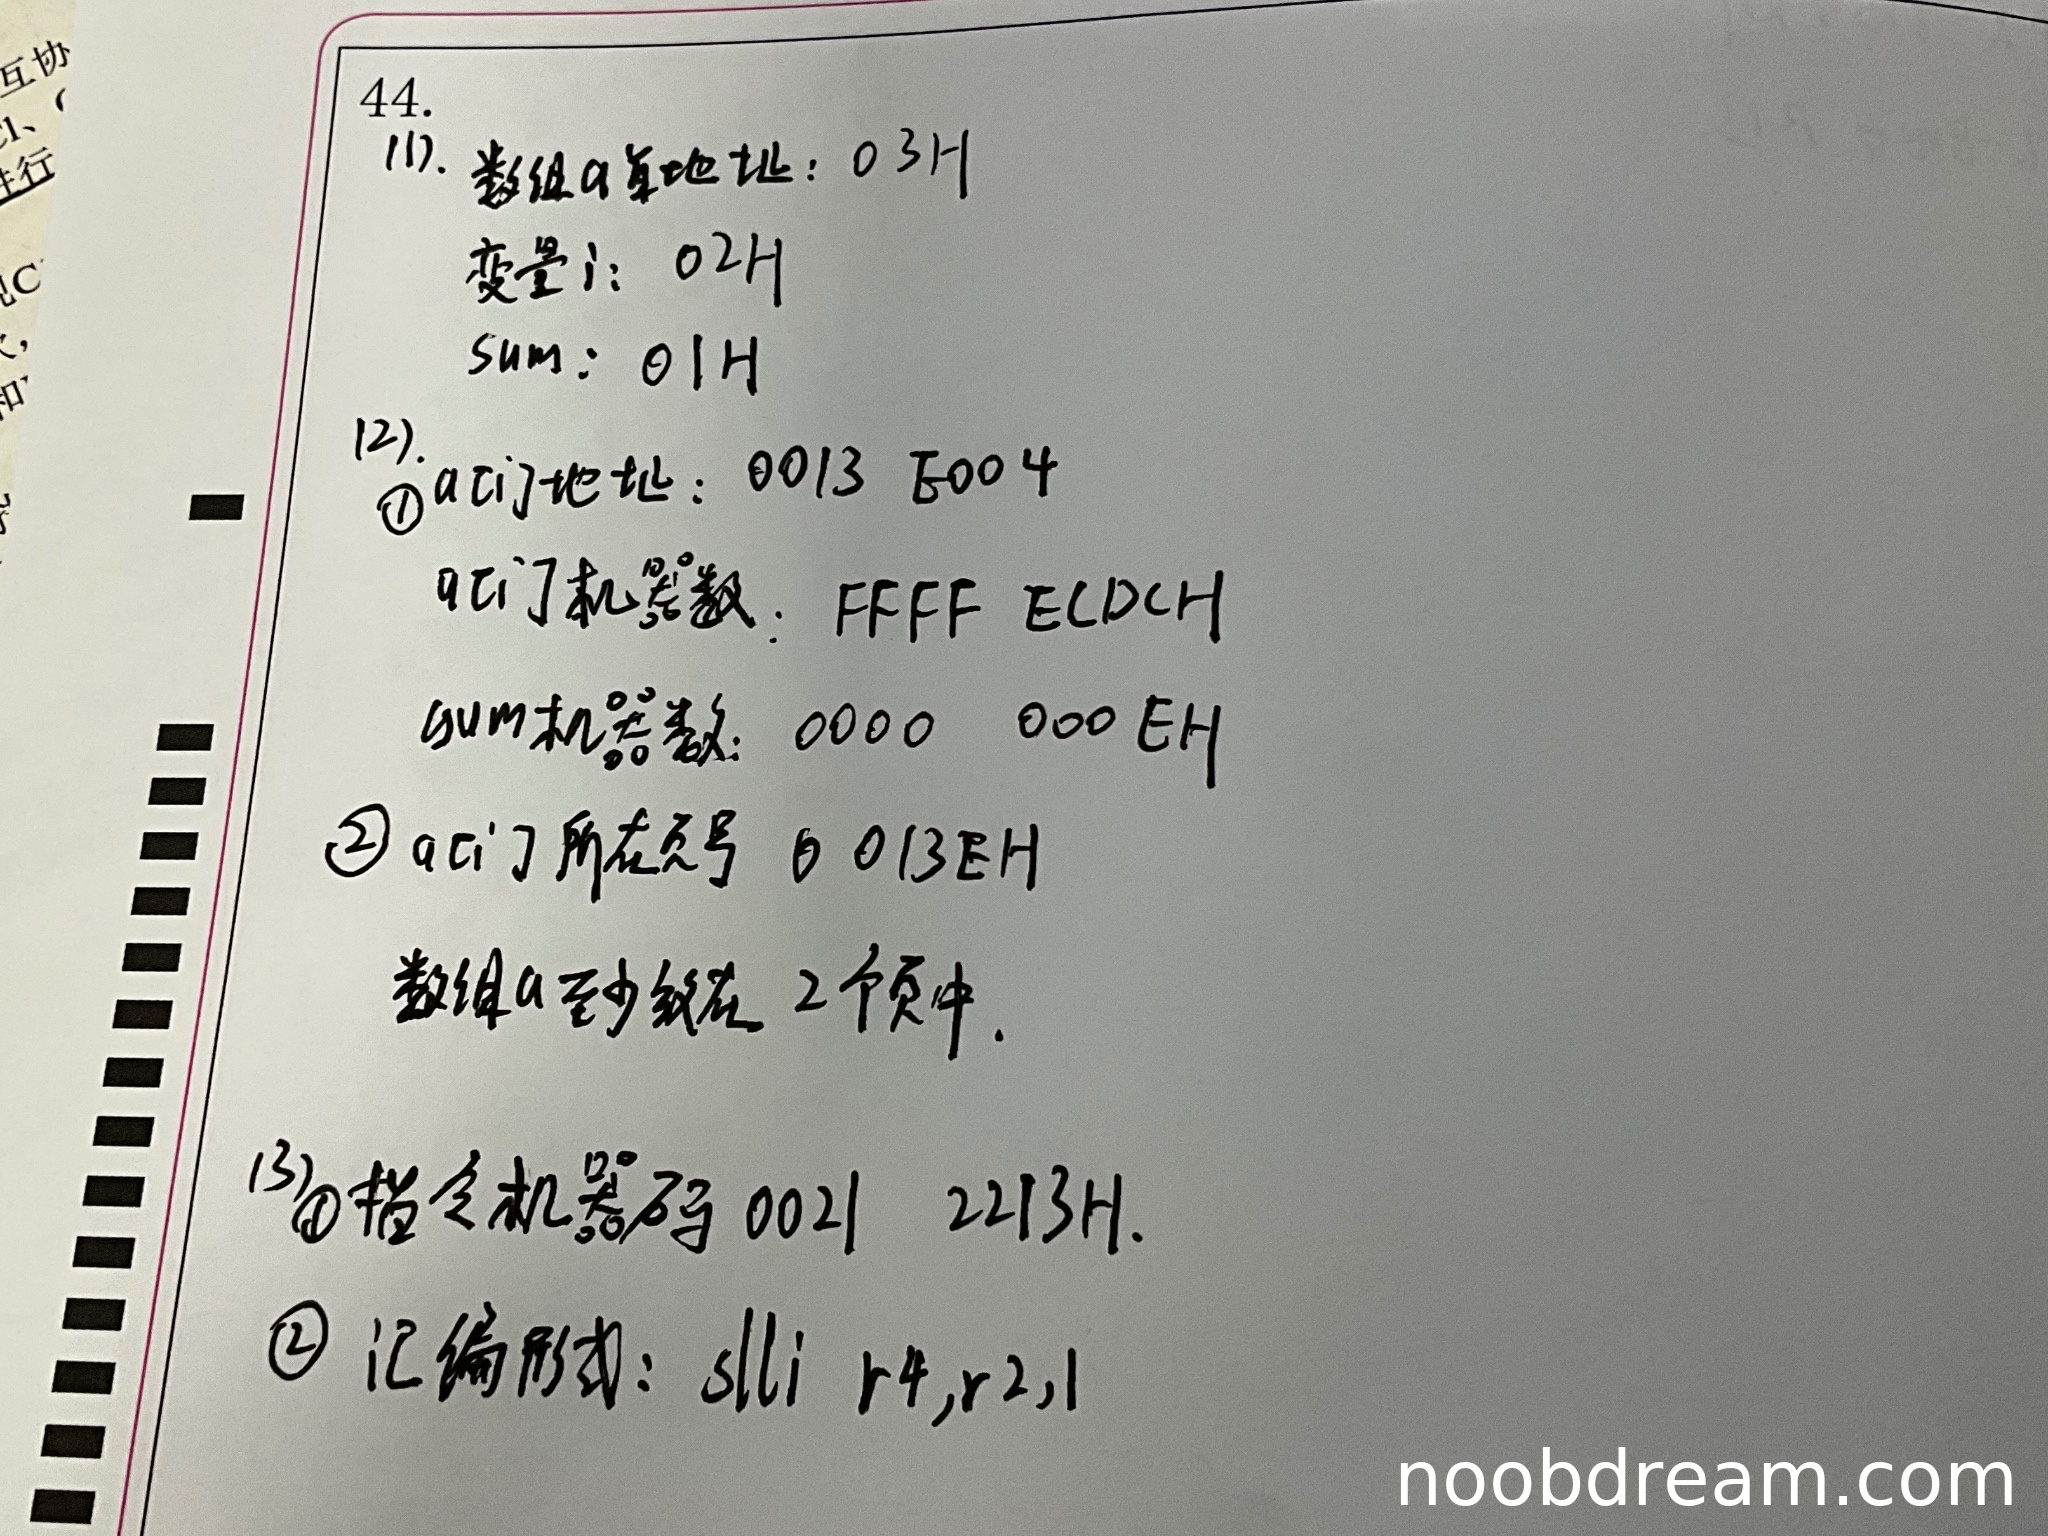 互协
C1、C
性行
见C
和
44.
(1). 数组a基地址: 03H
变量i: 02H
sum: 01H
(2).
① a[i]地址: 0013 E004
a[i]机器数: FFFF ECDCH
sum机器数: 0000 000EH
② a[i]所在页号 0 013EH
数组a至少放在 2个页中.
(3)① 指令机器码 0021 2213H.
② 汇编形式: slli r4,r2,1
noobdream.com